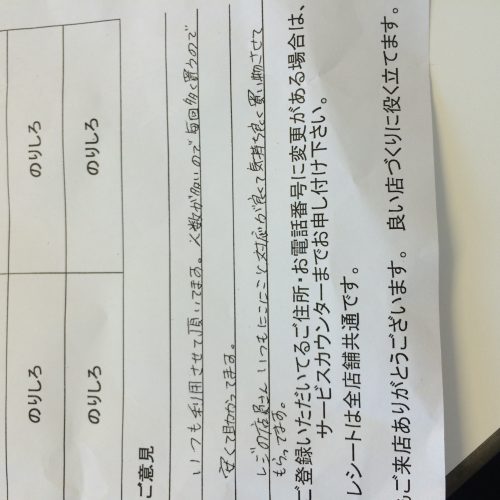 のりしろ
のりしろ
のりしろ
のりしろ
ご意見
いつも利用させて頂いてます。人数が多いので毎回多く買うので
安くて助かってます。
レジの店員さんいつもにこにこと対応が良くて気持ち良く買い物させて
もらってます。
ご登録いただいてるご住所・お電話番号に変更がある場合は、
サービスカウンターまでお申し付け下さい。
レシートは全店舗共通です。
ご来店ありがとうございます。 良い店づくりに役く立てます。